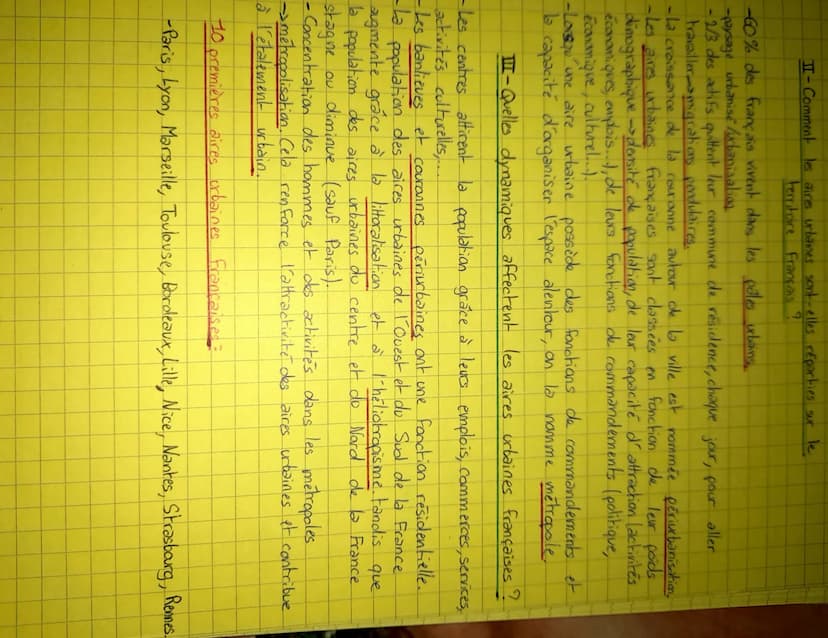 II - Comment les aires urbaines sont-elles réparties sur le
territoire Français ?
- 60% des français vivent dans les pôles urbains.
- paysage urbanisé/urbanisation
- 2/3 des actifs quittent leur commune de résidence, chaque jour, pour aller
travailler → migrations pendulaires.
- la croissance de la couronne autour de la ville est nommée périurbanisation.
- Les aires urbaines françaises sont classées en fonction de leur poids
démographique → densité de population, de leur capacité d'attraction (activités
économiques, emplois...), de leurs fonctions de commandements (politique,
économique, culturel...).
- Lorsqu'une aire urbaine possède des fonctions de commandements et
la capacité d'organiser l'espace alentour, on la nomme métropole.
III - Quelles dynamiques affectent les aires urbaines françaises ?
- Les centres attirent la population grâce à leurs emplois, commerces, services,
activités culturelles,...
- Les banlieues et couronnes périurbaines ont une fonction résidentielle.
- La population des aires urbaines de l'Ouest et du Sud de la France
augmente grâce à la littoralisation et à l'héliotropisme. tandis que
la population des aires urbaines du centre et du Nord de la France
stagne ou diminue (sauf Paris).
- Concentration des hommes et des activités dans les métropoles
→ métropolisation. Cela renforce l'attractivité des aires urbaines et contribue
à l'étalement urbain.
10 premières aires urbaines françaises :
- Paris, Lyon, Marseille, Toulouse, Bordeaux, Lille, Nice, Nantes, Strasbourg, Rennes.